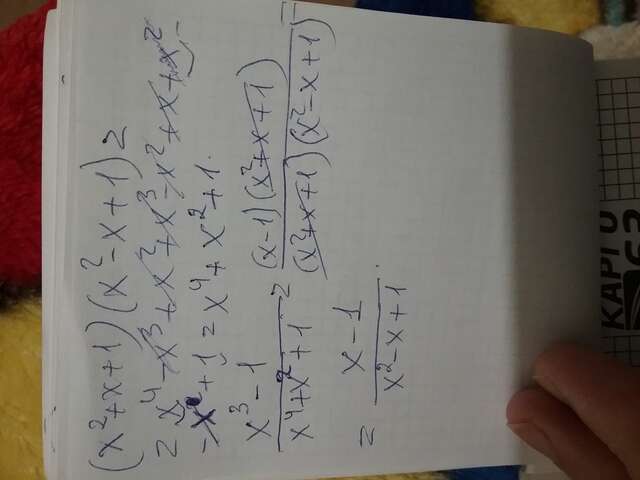 (x²+x+1)(x²-x+1)=
= x⁴-x³+x²+x³-x²+x+x²-
-x+1=x⁴+x²+1.
x³-1/x⁴+x²+1 = (x-1)(x²+x+1)/(x²+x+1)(x²-x+1) =
= x-1/x²-x+1.